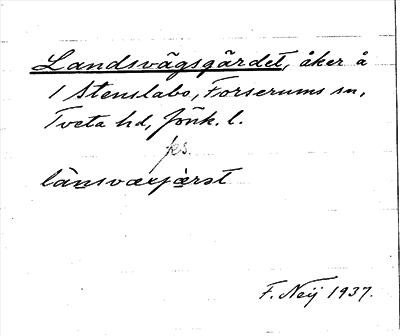 Landsvägsgärdet, åker å
1 Stenslabo, Forserums sn,
Tveta hd, Jönk. l.
länsværjærst
F. Neij 1937.